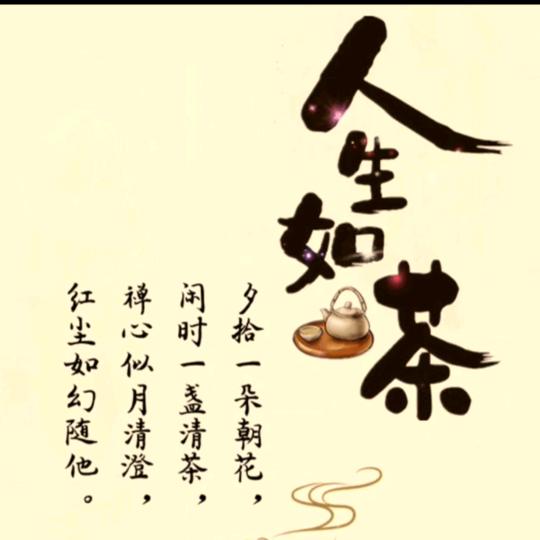 人生如茶
夕拾一朵朝花，
闲时一盏清茶，
禅心似月清澄，
红尘如幻随他。